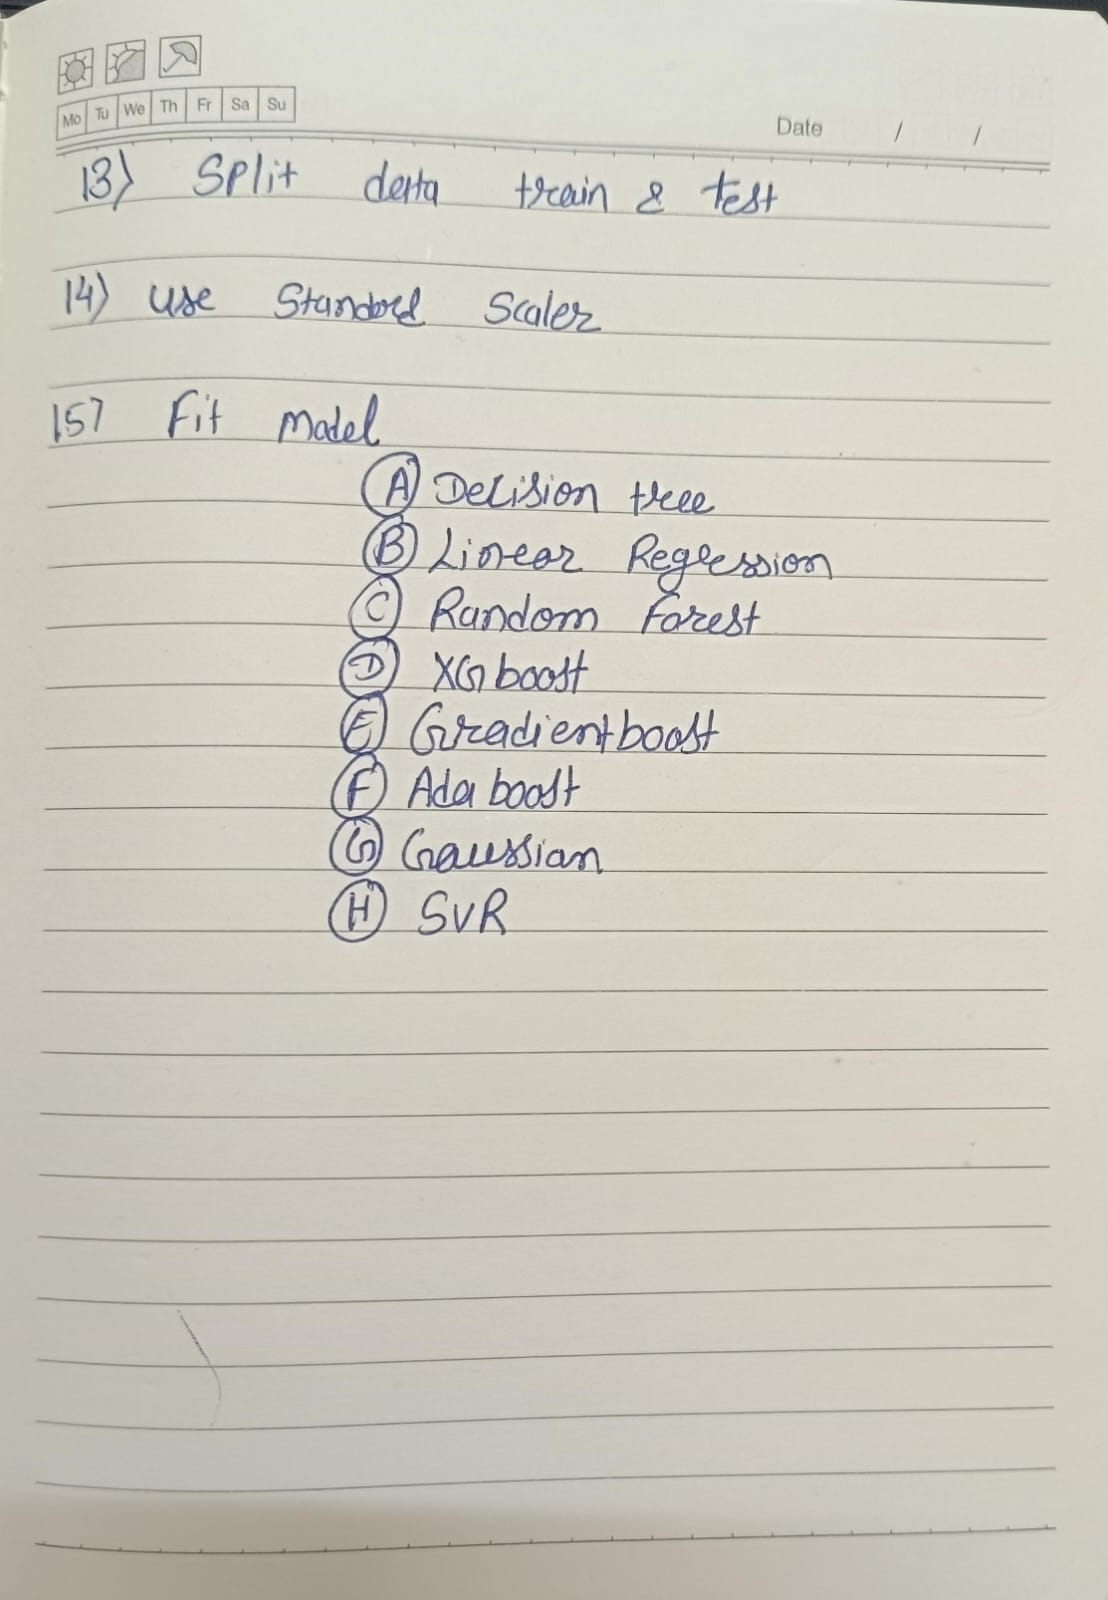 Mo Tu We Th Fr Sa Su
Date / /
13) Split data train & test
14) Use Standard Scaler
15) Fit Model
A Decision tree
B Linear Regression
C Random Forest
D XGboost
E Gradientboost
F Adaboost
G Gaussian
H SVR